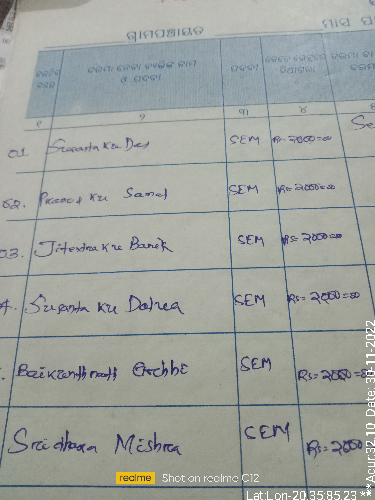 ଗ୍ରାମପଞ୍ଚାୟତ ମାସ
କ୍ରମିକ ନମ୍ବର ଦରମା ନେବା ବ୍ୟକ୍ତିଙ୍କ ନାମ ଓ ପଦବୀ ପଦବୀ
୧ ୨ ୩ ୪
01 Susanta Ku Das SEM Rs=2000=00 Se
02. Pramod Ku Samal SEM Rs=2000=00
03. Jitendra Ku Barik SEM Rs=2000=00
4. Susanta Ku SEM Rs=2000=00
Baikunthnath SEM Rs=2000=00
Sridhara Mishra SEM Rs=2000
realme Shot on realme C12
Lat:Lon-20.35:85.23 **Acur:32.10, Date: 30-11-2022